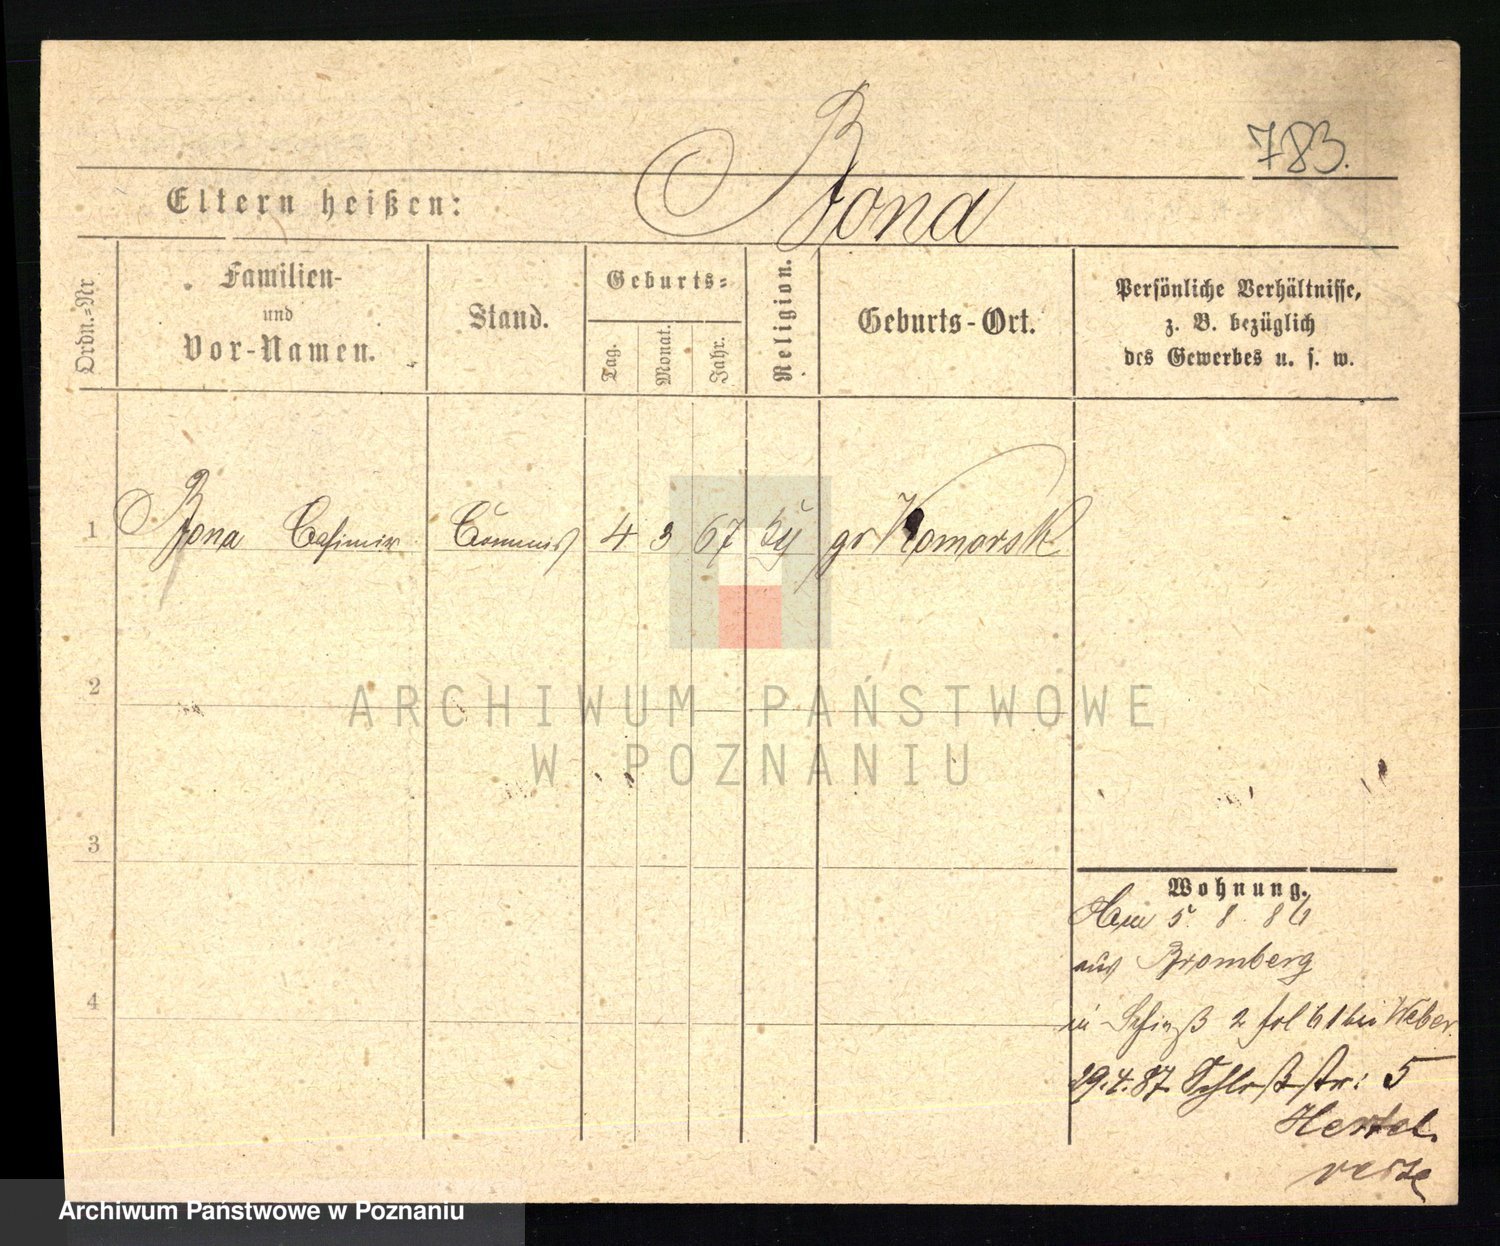 783.
Eltern heißen: Bona
Ordn.=Nr
Familien-
und
Vor-Namen.
Stand.
Geburts=
Tag.
Monat.
Jahr.
Religion.
Geburts-Ort.
Persönliche Verhältnisse,
z. B. bezüglich
des Gewerbes u. s. w.
1 Bona Casimir Commis 4 3 67 gr Komorsk
2
3
4
ARCHIWUM PAŃSTWOWE
W POZNANIU
Wohnung.
5 8 86
aus Bromberg
in 2 fol 61 bei Weber
29.4.87. Schloßstr: 5
Hertel
Archiwum Państwowe w Poznaniu